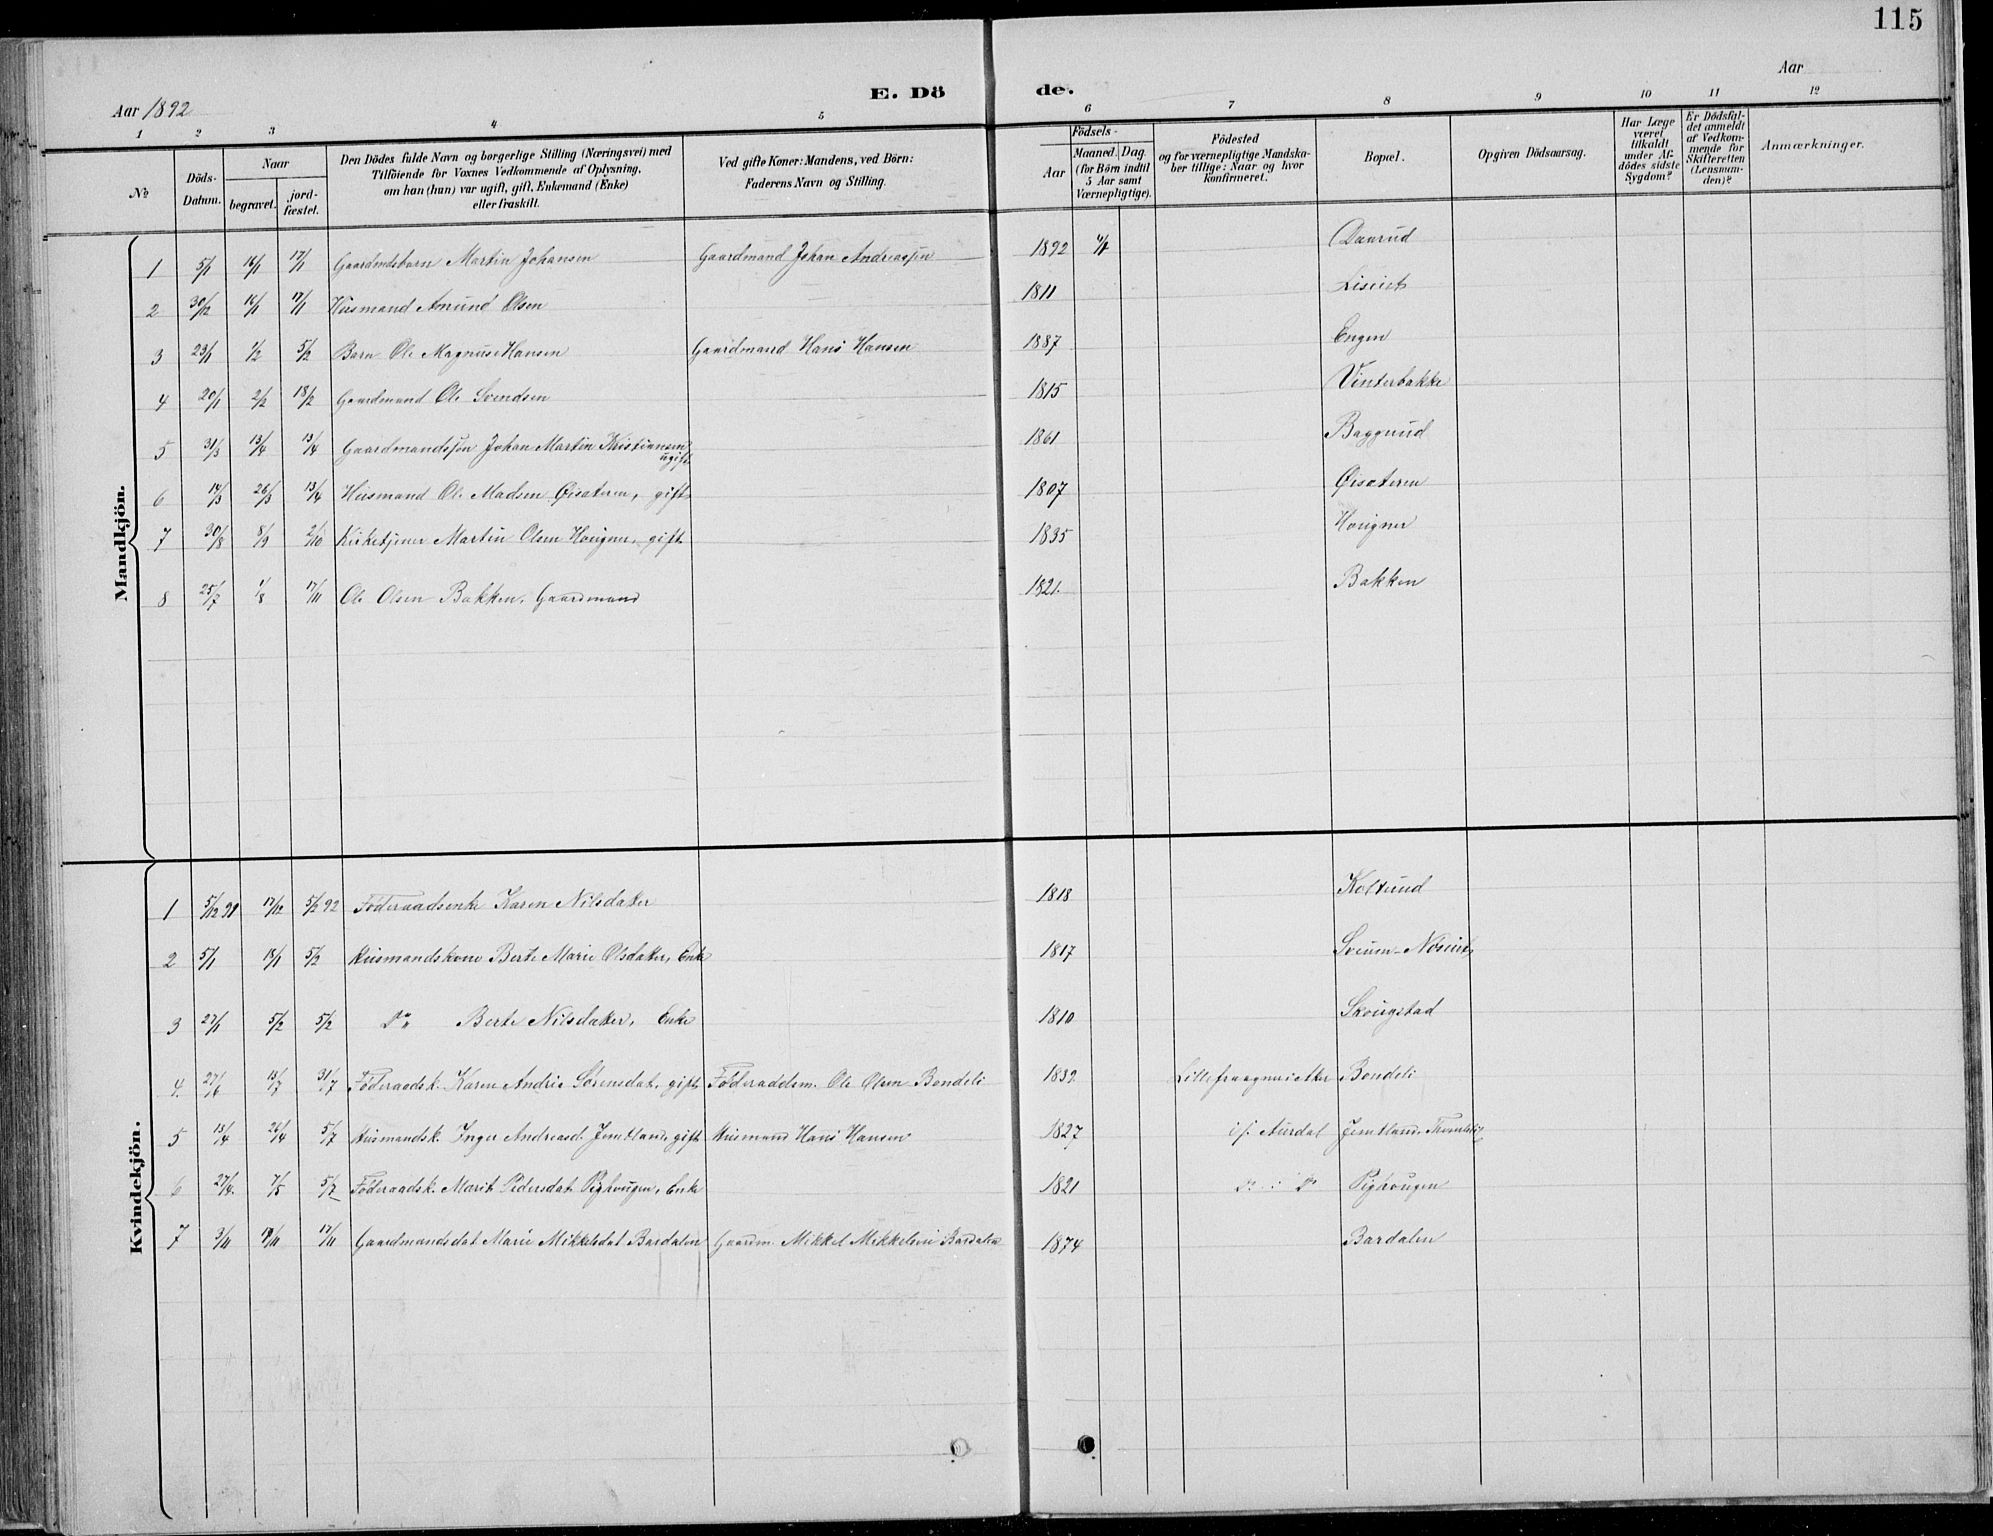 115
Aar 1892
E. Dö de.
Aar
1 2 3 4 5 6 7 8 9 10 11 12
No
Döds-Datum.
Naar
begravet.
jord-fæstet.
Den Dödes fulde Navn og borgerlige Stilling (Næringsvei) med
Tilföiende for Voxnes Vedkommende af Oplysning,
om han (hun) var ugift, gift, Enkemand (Enke)
eller fraskilt.
Ved gifte Koner: Mandens, ved Börn:
Faderens Navn og Stilling.
Födsels-
Aar
Maaned. Dag.
(for Börn indtil
5 Aar samt
Værnepligtige).
Födested
og for værnepligtige Mandska-
ber tillige: Naar og hvor
konfirmeret.
Bopæl.
Opgiven Dödsaarsag.
Har Læge
været
tilkaldt
under Af-
dödes sidste
Sygdom?
Er Dödsfal-
det anmeldt
af Vedkom-
mende for
Skifteretten
(Lensman-
den)?
Anmærkninger.
Mandkjön.
1 5/1 16/1 17/1 Gaardmdsbarn Martin Johansen Gaardmand Johan Andreassen 1892 Daurud
2 30/12 16/1 17/1 Husmand Amund Olsen 1811
3 23/1 1/2 5/2 Barn Ole Magnus Hansen Gaardmand Hans Hansen 1887 Engen
4 20/1 2/2 18/2 Gaardmand Ole Svendsen 1815 Vinterbakke
5 31/3 13/4 13/4 Gaardmandssøn Johan Martin Kristiansen ugift 1861 Baggrud
6 14/3 26/3 13/4 Husmand Ole Madsen gift 1807
7 30/8 8/9 2/10 Kirketjener Martin Olsen Hougner, gift 1835 Hougner
8 25/7 1/8 17/11 Ole Olsen Bakken, Gaardmand 1821. Bakken
Kvindekjön.
1 5/12 91 17/12 5/2 92 Føderaadsenke Karen Nilsdatter 1818 Kolterud
2 5/1 18/1 5/2 Husmandskone Berte Marie Olsdatter, Enke 1817
3 27/1 5/2 5/2 Do Berte Nilsdatter, Enke 1810 Skougstad
4. 27/6 13/7 31/7 Føderaadsk. Karen Andrie Sørensdat. gift Føderaadsm. Ole Olsen Bondeli 1839 Bondeli
5 15/4 26/4 5/7 Husmandsk. Inger Andreasd. Jemtland, gift Husmand Hans Hansen 1827 Aurdal Jemtland,
6 27/4. 7/5 5/7 Føderaadsk. Marit Pedersdat. Pighougen, Enke 1821 Do i Do Pighougen
7 3/11 17/11 Gaardmandsdat Marie Mikkelsdat Bardalen Gaardm. Mikkel Mikkelsen Bardalen 1874 Bardalen